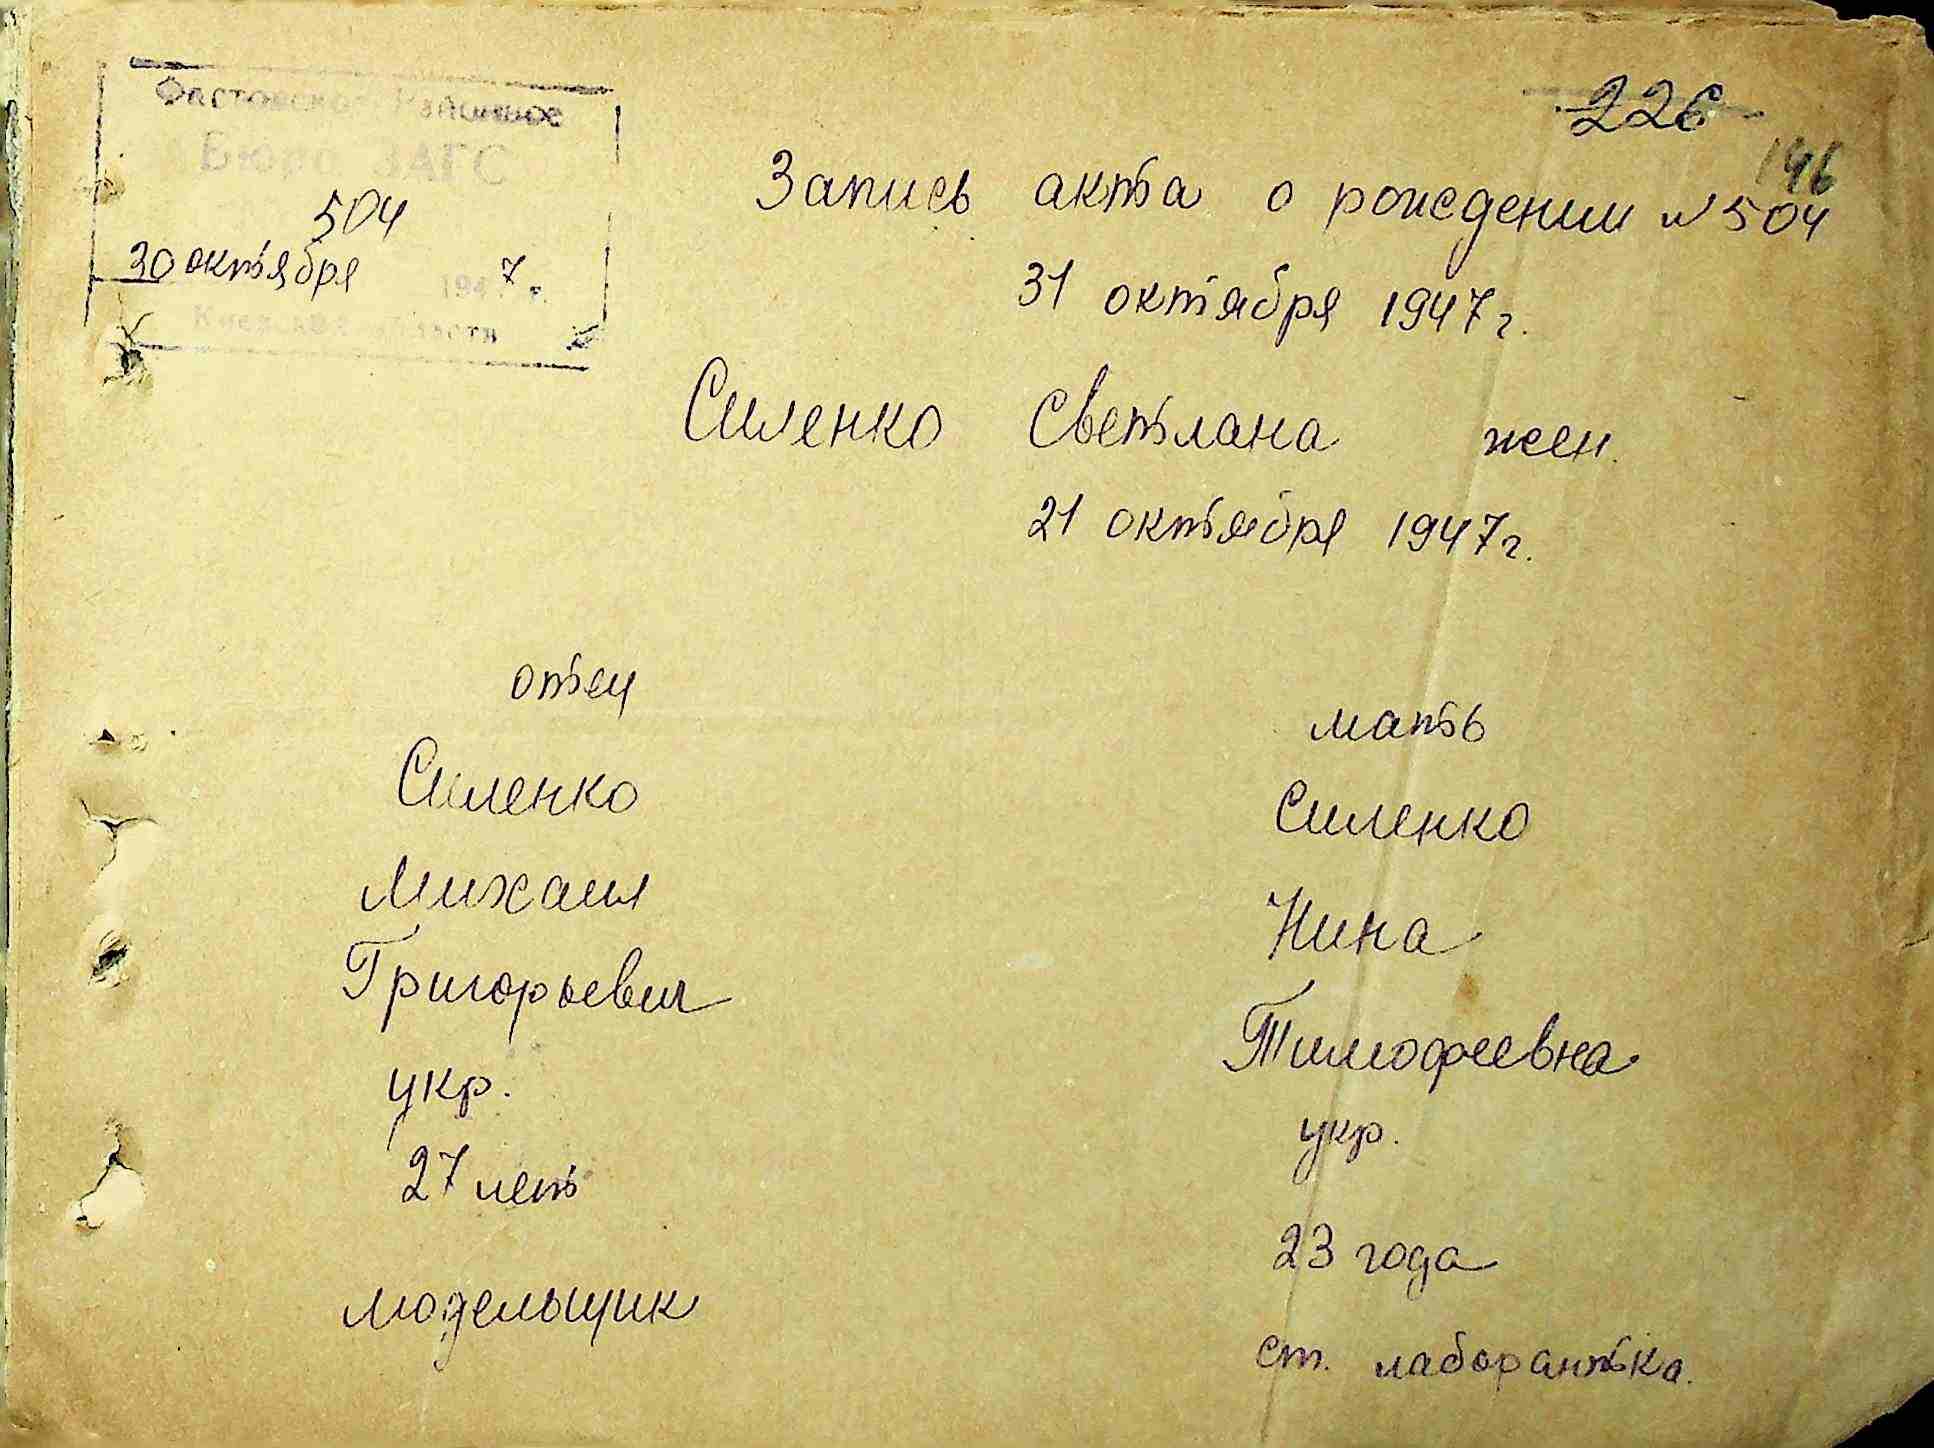 Фастовское Районное
Бюро ЗАГС
504
30 октября 1947 г.
Киевская область
226
146
Запись акта о рождении N 504
31 октября 1947 г.
Силенко Светлана жен.
21 октября 1947 г.
отец
Силенко
Михаил
Григорьевич
укр.
27 лет
модельщик
мать
Силенко
Нина
Тимофеевна
укр.
23 года
ст. лаборантка.